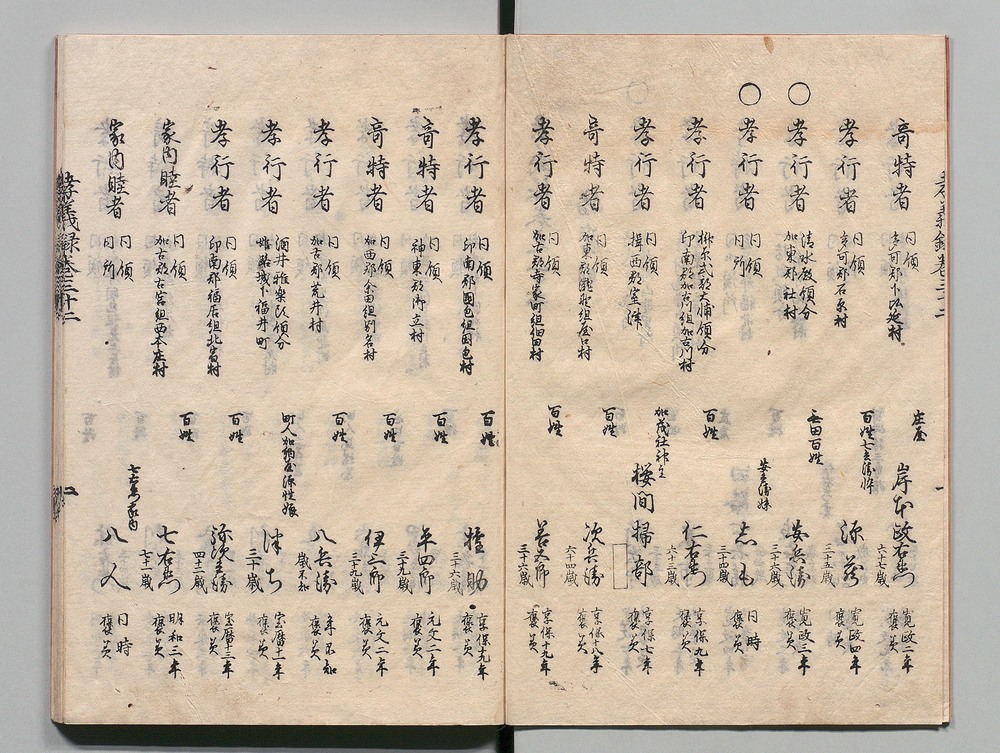 孝義録巻三十二
奇特者
同領
多可郡下比延村
庄屋
岸本政右衛門
六十七歳
寛政二年
褒美
孝行者
同領
多可郡石原村
百姓七兵衛悴
源蔵
三十五歳
寛政四年
褒美
○孝行者
清水殿領分
加東郡社村
無田百姓
安兵衛
三十六歳
寛政三年
褒美
○孝行者
同領
同所
安兵衛妹
志も
三十四歳
同時
褒美
孝行者
柳原式部大輔領分
印南郡加古川組加古川村
百姓
仁右衛門
六十三歳
享保九年
褒美
孝行者
同領
揖西郡室津
加茂社神主
桜間掃部
享保七年
褒美
奇特者
同領
加東郡
百姓
次兵衛
六十四歳
享保八年
褒美
孝行者
同領
加古郡寺家町組細田村
百姓
善五郎
三十六歳
享保十九年
褒美
孝行者
同領
印南郡国包組国包村
百姓
権助
三十六歳
享保九年
褒美
奇特者
同領
神東郡御立村
百姓
平四郎
三十九歳
元文二年
褒美
奇特者
同領
加西郡余田組別名村
百姓
伊三郎
三十九歳
元文二年
褒美
孝行者
同領
加古郡荒井村
百姓
八兵衛
歳不知
年不知
褒美
孝行者
酒井雅楽頭領分
姫路城下福井町
町人加納屋源姓娘
津ち
三十歳
宝暦十一年
褒美
孝行者
同領
印南郡福居組北宿村
百姓
弥次兵衛
四十二歳
宝暦十三年
褒美
家内睦者
同領
加古郡古宮組西本庄村
百姓
七右衛門
七十一歳
明和三年
褒美
家内睦者
同領
同所
七右衛門家内
八人
同時
褒美
孝義録巻三十二